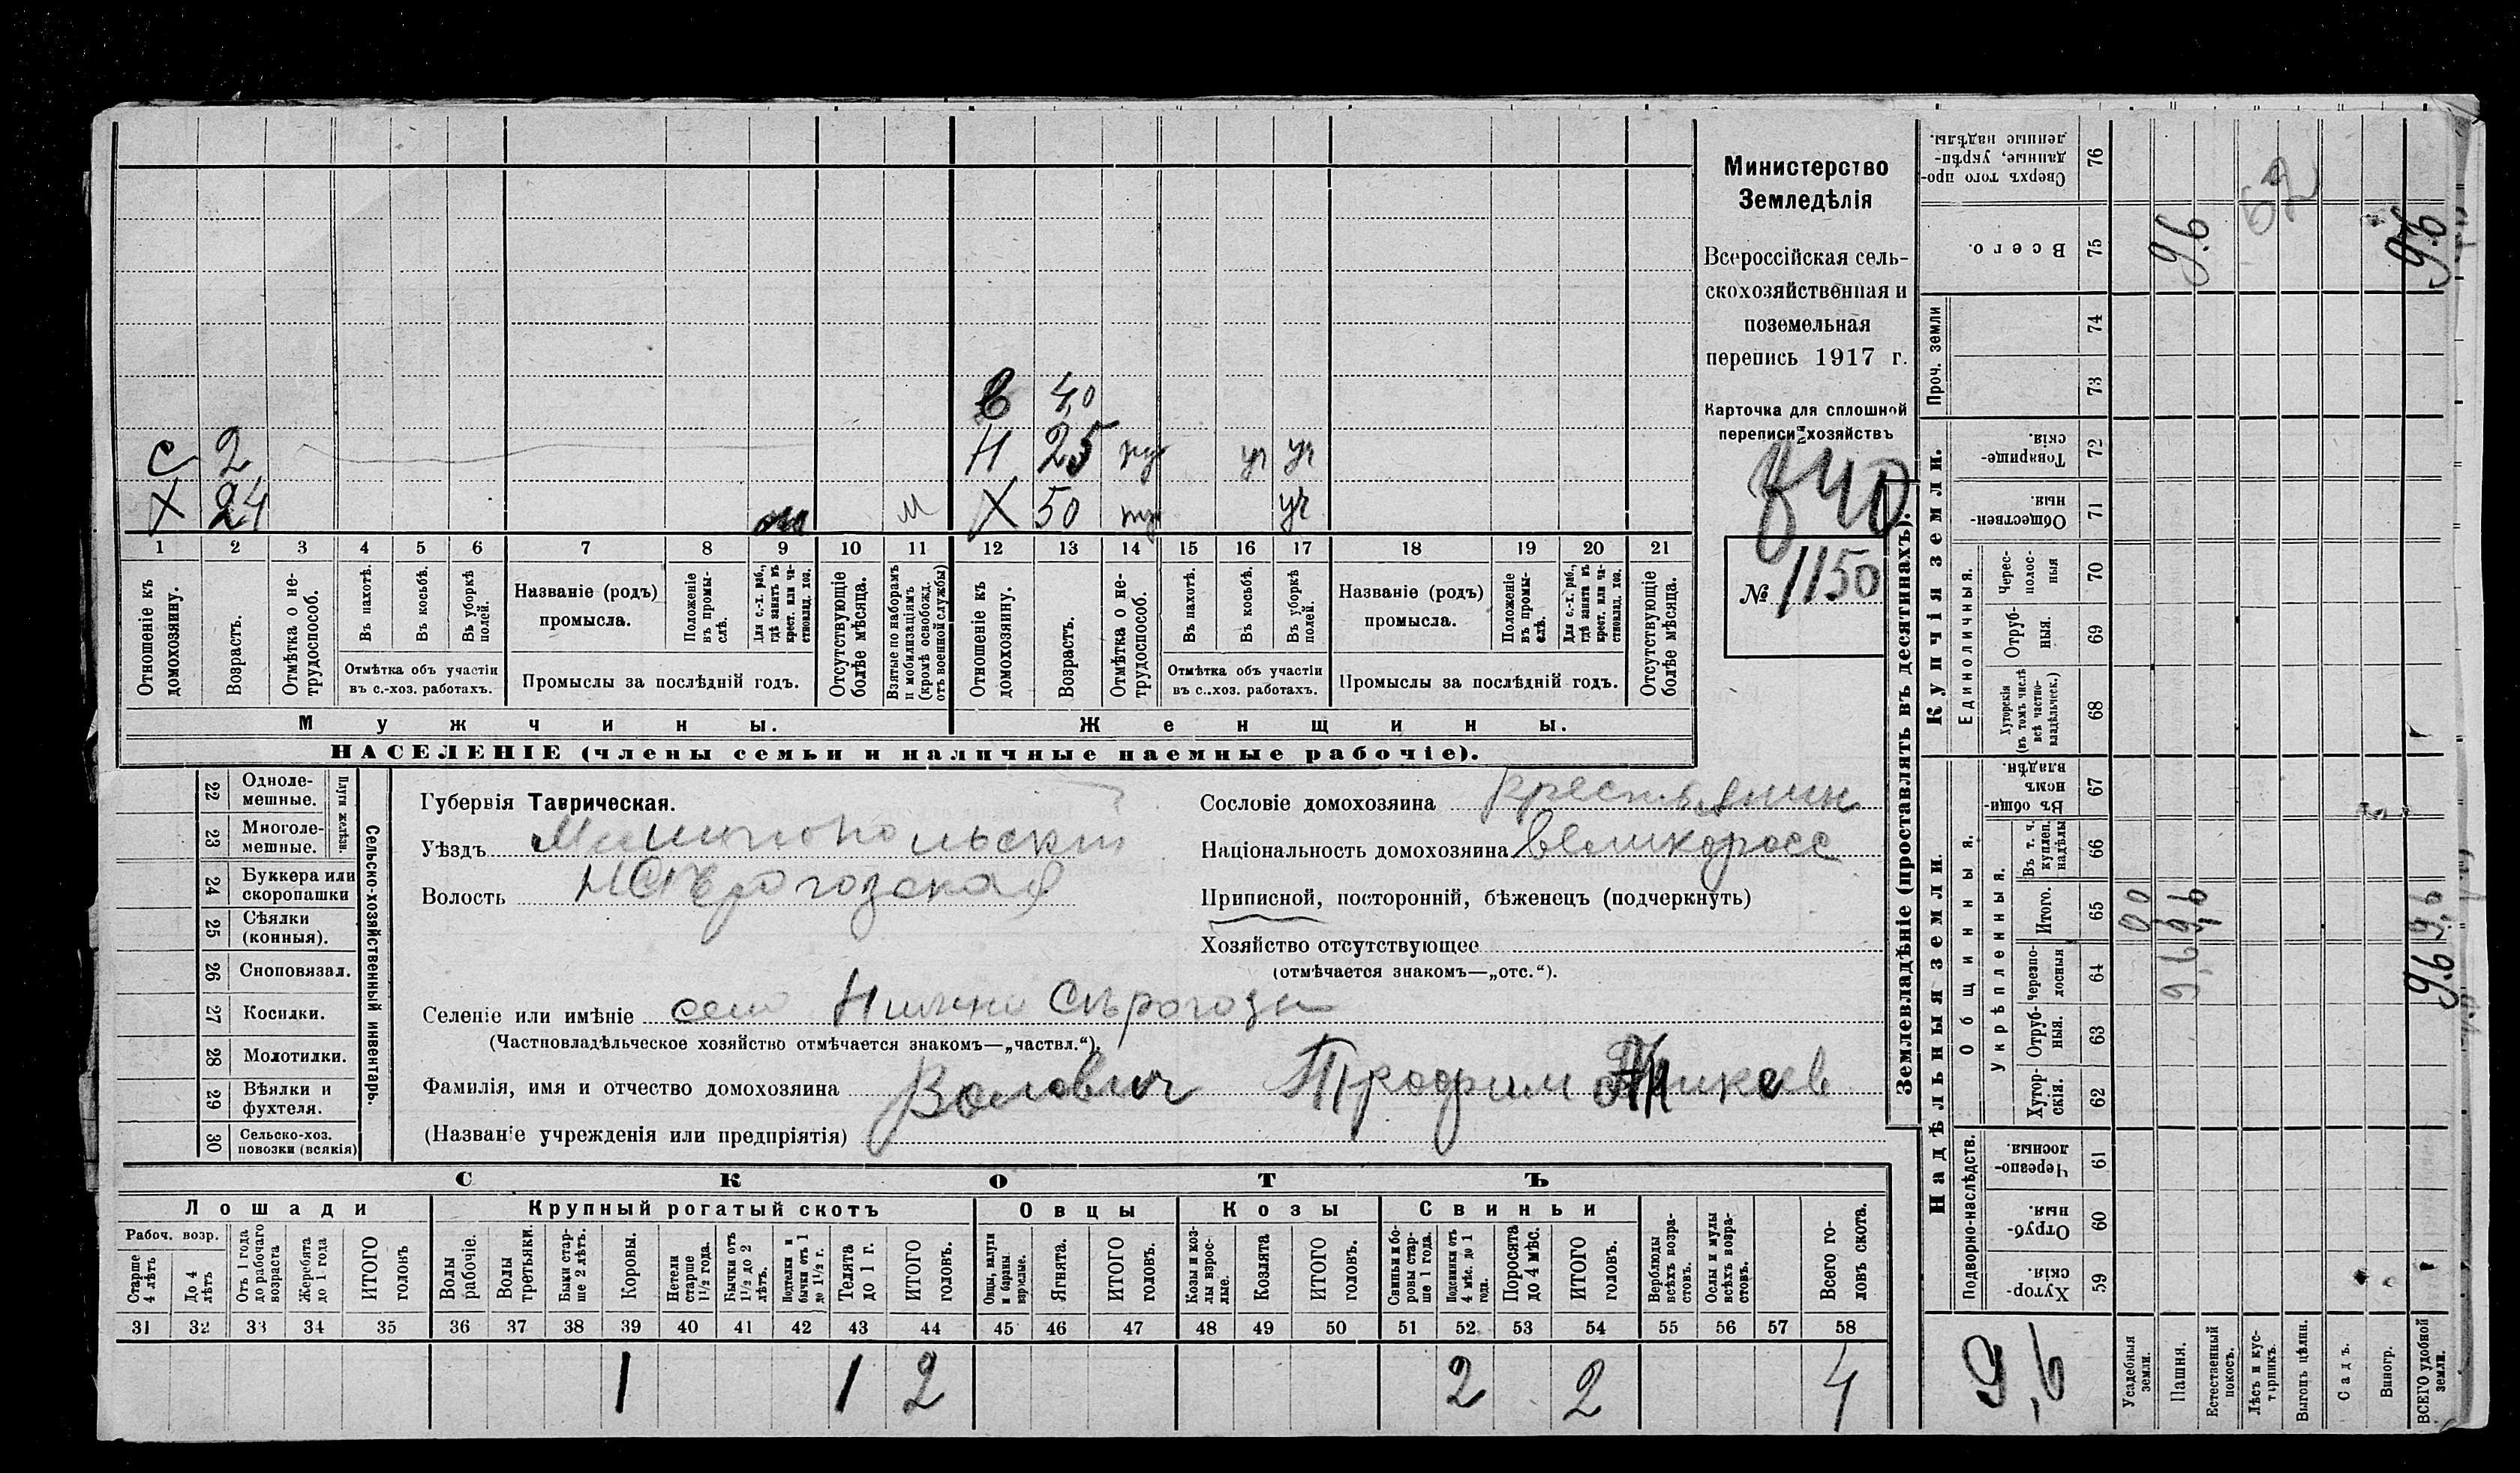 Министерство
Земледѣлія
Всероссійская сель-
скохозяйственная и
поземельная
перепись 1917 г.
Карточка для сплошной
переписи хозяйствъ
№ 1150
в 40
С 2 Н 25 уч уч
Х 24 м Х 50 уч
1 2 3 4 5 6 7 8 9 10 11 12 13 14 15 16 17 18 19 20 21
Отношеніе къ домохозяину.
Возрастъ.
Отмѣтка о не-трудоспособ.
Въ пахотѣ.
Въ косьбѣ.
Въ уборкѣ полей.
Отмѣтка объ участіи
въ с.-хоз. работахъ.
Названіе (родъ)
промысла.
Положеніе въ промы-слѣ.
Для с.-х. раб., гдѣ занятъ въ крест. или ча-стновлад. хоз.
Промыслы за послѣдній годъ.
Отсутствующіе болѣе мѣсяца.
Взятые по наборамъ и мобилизаціямъ (кромѣ освобожд. отъ военной службы)
Отношеніе къ домохозяину.
Возрастъ.
Отмѣтка о не-трудоспособ.
Въ пахотѣ.
Въ косьбѣ.
Въ уборкѣ полей.
Отмѣтка объ участіи
въ с.-хоз. работахъ.
Названіе (родъ)
промысла.
Положеніе въ промы-слѣ.
Для с.-х. раб., гдѣ занята въ крест. или ча-стновлад. хоз.
Промыслы за послѣдній годъ.
Отсутствующіе болѣе мѣсяца.
Мужчины. Женщины.
НАСЕЛЕНІЕ (члены семьи и наличные наемные рабочіе).
22 Одноле-мешные.
23 Многоле-мешные.
Плуги желѣзн.
24 Буккера или скоропашки
25 Сѣялки (конныя).
26 Сноповязал.
27 Косилки.
28 Молотилки.
29 Вѣялки и фухтеля.
30 Сельско-хоз. повозки (всякія)
Сельско-хозяйственный инвентарь.
Губернія Таврическая.
Уѣздъ Мелитопольскій
Волость НСѣрогозская
Сословіе домохозяина крестьянин
Національность домохозяина великоросс
Приписной, посторонній, бѣженецъ (подчеркнуть)
Хозяйство отсутствующее
(отмѣчается знакомъ—„отс.“).
Селеніе или имѣніе село Нижни Сѣрогозы
(Частновладѣльческое хозяйство отмѣчается знакомъ—„частвл.“).
Фамилія, имя и отчество домохозяина Волович Трофим
(Названіе учрежденія или предпріятія)
СКОТЪ
Лошади Крупный рогатый скотъ Овцы Козы Свиньи
Рабоч. возр.
Старше 4 лѣтъ
До 4 лѣтъ
Отъ 1 года до рабочаго возраста
Жеребята до 1 года
ИТОГО головъ
Волы рабочіе.
Волы третьяки.
Быки стар-ше 2 лѣтъ.
Коровы.
Нетели старше 1½ года.
Бычки отъ 1½ до 2 лѣтъ.
Подтелки и бычки отъ 1 до 1½ г.
Телята до 1 г.
ИТОГО головъ.
Овцы, валухи и бараны взрослые.
Ягнята.
ИТОГО головъ.
Козы и коз-лы взрос-лые.
Козлята
ИТОГО головъ.
Свиньи и бо-ровы стар-ше 1 года.
Подсвинки отъ 4 мѣс. до 1 года.
Поросята до 4 мѣс.
ИТОГО головъ.
Верблюды всѣхъ возра-стовъ.
Ослы и мулы всѣхъ возра-стовъ.
Всего го-ловъ скота.
31 32 33 34 35 36 37 38 39 40 41 42 43 44 45 46 47 48 49 50 51 52 53 54 55 56 57 58
1 1 2 2 2 4
Землевладѣніе (проставлять въ десятинахъ).
Надѣльныя земли. Купчія земли. Проч. земли
Подворно-наслѣдств.
Общинныя.
Укрѣпленныя.
Единоличныя.
59 Хутор-скія.
60 Отруб-ныя.
61 Черезпо-лосныя.
62 Хутор-скія.
63 Отруб-ныя.
64 Черезпо-лосныя
65 Итого.
66 Въ т. ч. куплен. надѣлы
67 Въ общин-номъ владѣн.
68 Хуторскія (въ томъ числѣ всѣ частно-владѣльческ.)
69 Отруб-ныя.
70 Черес-полос-ныя
71 Обществен-ныя.
72 Товарище-скія.
73
74
75 Всего.
76 Сверхъ того про-данные, укрѣп-ленные надѣлы.
Усадебныя земли.
Пашня.
9,6 9,6 9.6
Естественный покосъ.
Лѣсъ и кус-тарникъ.
Выгонъ цѣлин.
Садъ.
Виногр.
ВСЕГО удобной земли.
9,6 9,6 9,6
9,6